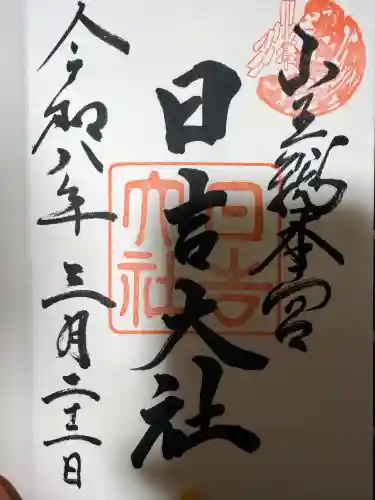 山王總本宮
日吉大社
令和八年三月二十二日
日吉大社